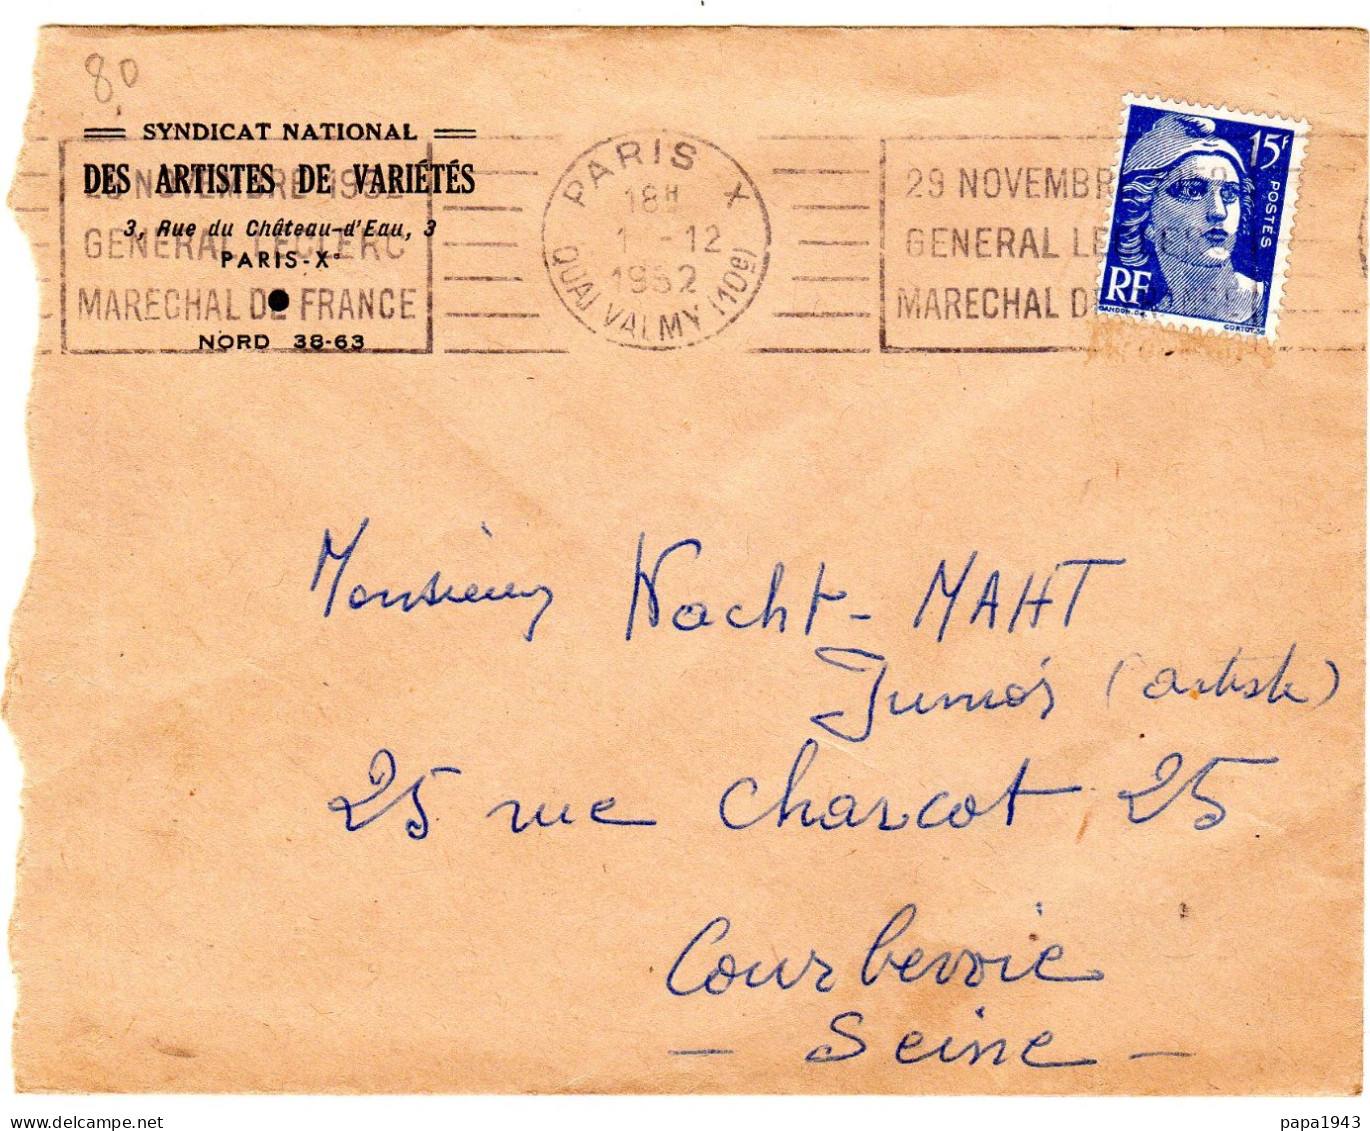 80
SYNDICAT NATIONAL
DES ARTISTES DE VARIÉTÉS
3, Rue du Château-d'Eau, 3
PARIS-X°
NORD 38-63
29 NOVEMBRE 1952
GENERAL LECLERC
MARECHAL DE FRANCE
PARIS X
18H
1 -12
1952
QUAI VALMY (10e)
29 NOVEMBR
GENERAL LECLE
MARECHAL D
15F
POSTES
RF
GANDON
CORTOT
Monsieur Nacht-MAHT
Junior (artiste)
25 rue Charcot 25
Courbevoie
- Seine -
papa1943